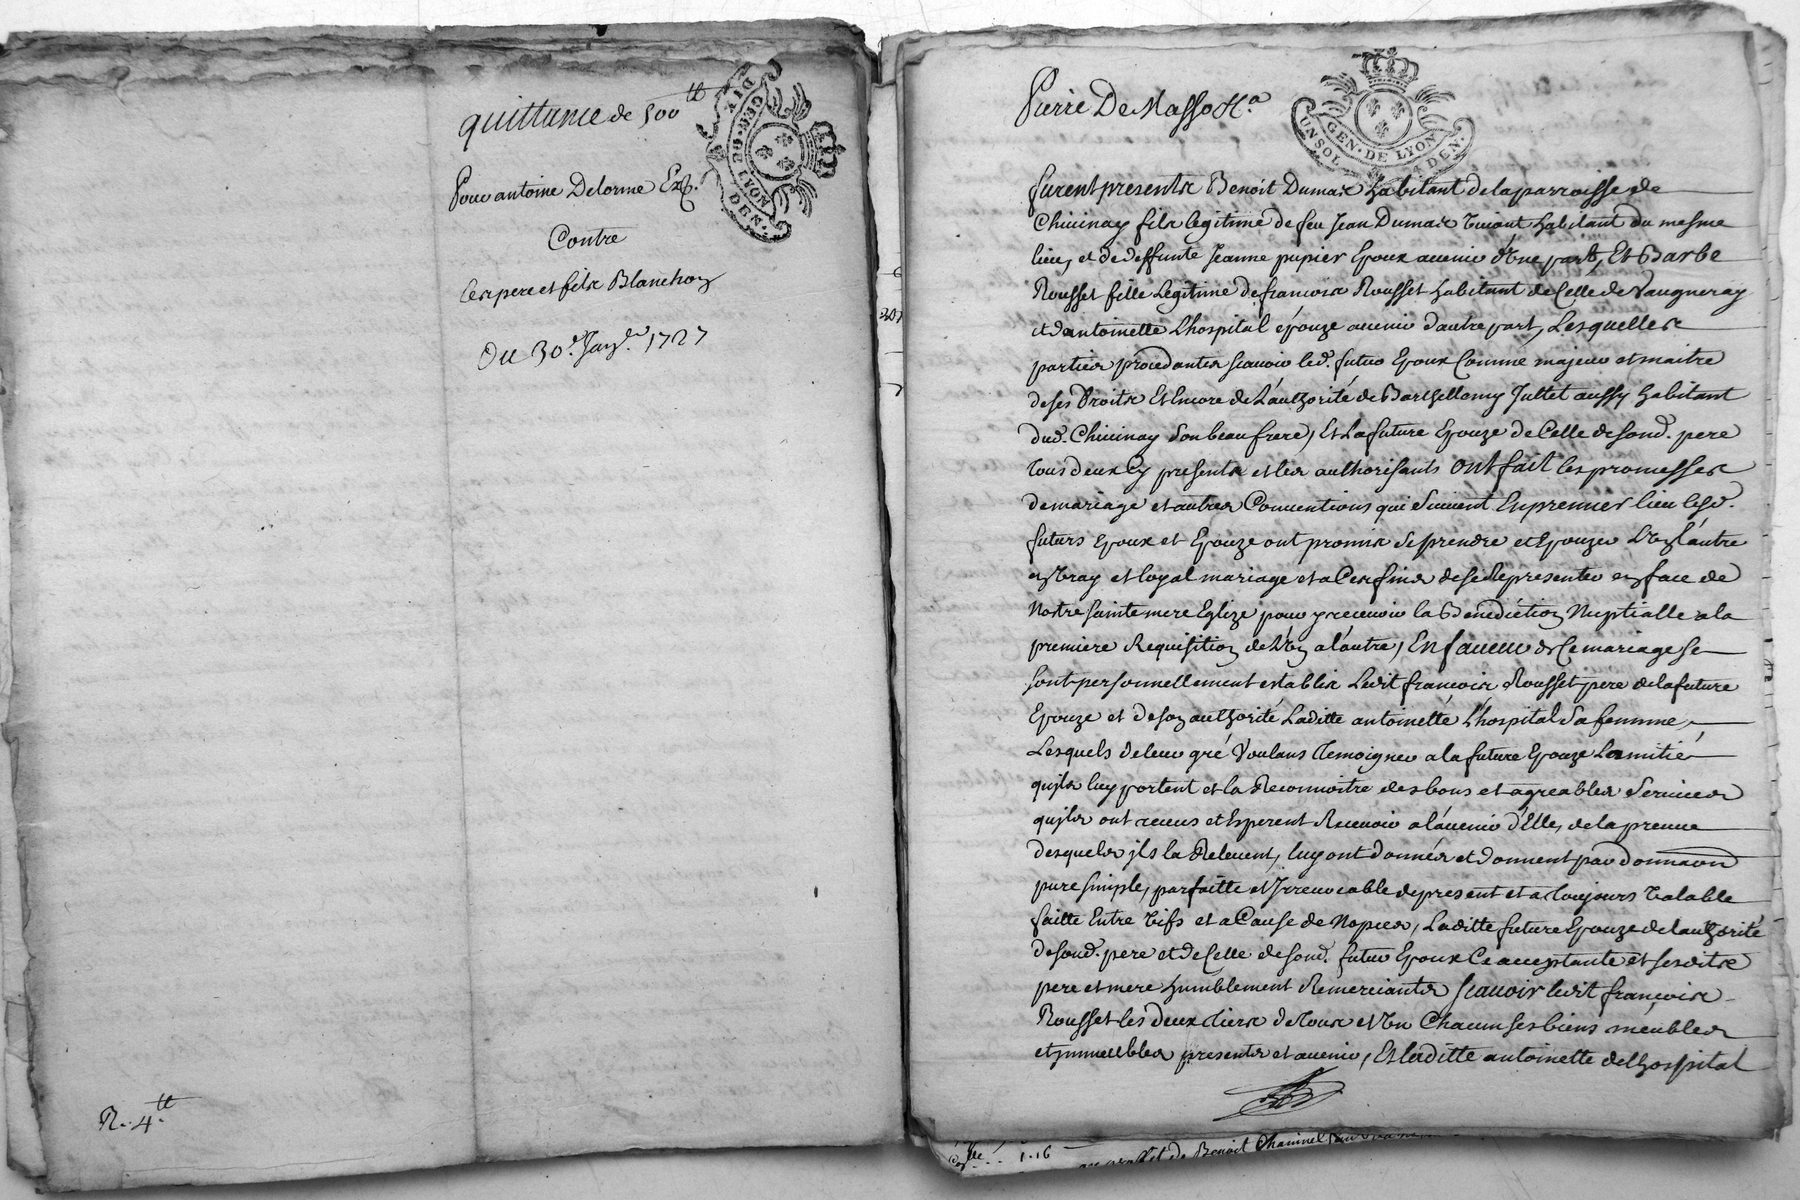 quittance de 500tt
Pour antoine Delorme Exp.
Contre
les pere et fils Blanchon
Du 30e. Janr. 1727
R. 4tt
GEN. DE LYON
DEN.
Pierre De Masso
UN SOL GEN. DE LYON DEN.
furent presents Benoit Dumas habitant de la parroisse de
Chivinay fils legitime de feu Jean Dumas vivant habitant du mesme
lieu, et de deffunte Jeanne pupier Epoux avenir d'une part, Et Barbe
Rousset fille Legitime de francois Rousset habitant de Celle de Vaugneray
et d'antoinette L'hospital épouze avenir d'autre part, Lesquelles
parties procedantes scavoir led. futur Epoux Comme majeur et maitre
de ses Droits Et Encore de L'authorité de Barthellemy Jullet aussy habitant
dud. Chivinay son beau frere, Et La future Epouze de Celle de sond. pere
tous deux Cy presents et les authorisants ont fait les promesses
de mariage et autres Conventions qui suivent En premier lieu lesd.
futurs epoux et Epouze ont promis se prendre et Epouzer L'un L'autre
en vray et loyal mariage et a Ces fins de se Representer en face de
Nostre sainte mere Eglize pour y recevoir la Benediction Nuptialle a la
premiere Requisition de L'un a l'autre, En faveur de Ce mariage se
sont personnellement establis Ledit francois Rousset pere de la future
Epouze et de son authorité Laditte antoinette L'hospital sa femme,
Lesquels de leur gré Voulans Temoigner a la future Epouze L'amitié
qu'ils luy portent et la Reconnoitre des bons et agreables services
qu'ils ont receus et Esperent Recevoir a l'avenir d'Elle, de la preuve
desquels ils la Relevent, luy ont donnés et donnent par donnaon
pure simple, parfaitte et Irrevocable de present et a toujours valable
faitte Entre vifs et a Cause de Nopces, Laditte future Epouze de l'authorité
de sond. pere et de Celle de sond. futur Epoux Ce acceptante et sesdits
pere et mere humblement Remerciants scavoir ledit francois
Rousset les deux tiers de tous et Un Chacun ses biens meubles
et immeubles presents et avenir, Et laditte antoinette de L'hospital
1.16
de Benoit